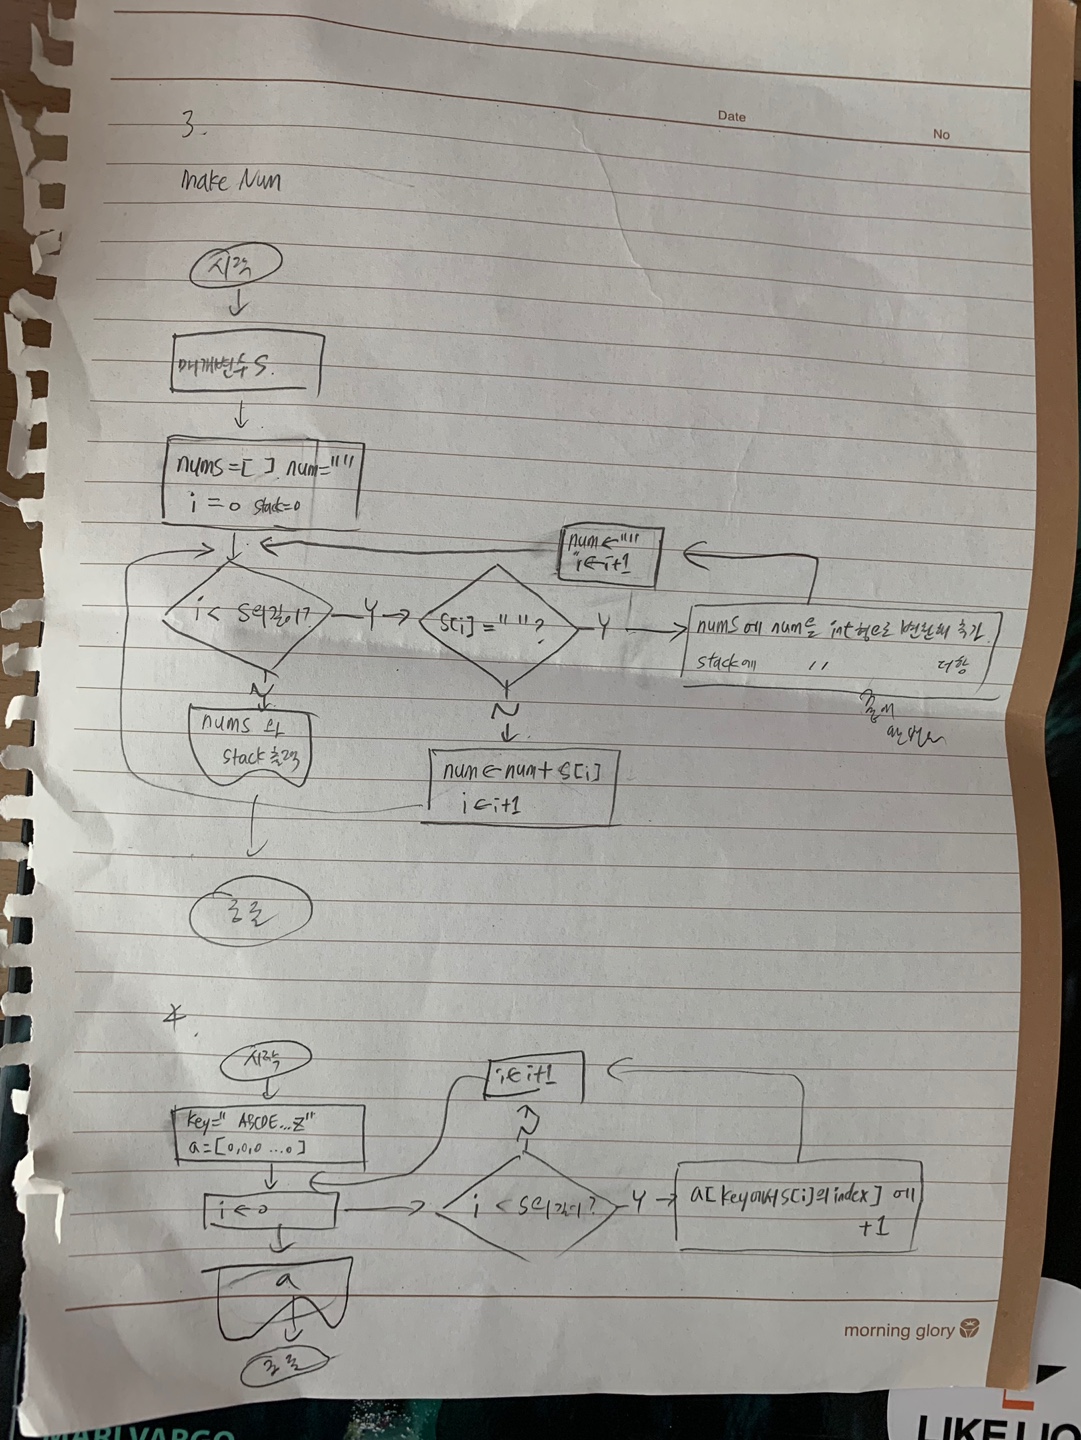 Date
No
3.
make Num
시작
매개변수 S.
nums=[ ] num=""
i=0 stack=0
num←""
i←i+1
i < S의길이?
Y
S[i]=" "?
Y
nums에 num을 int형으로 변환해 추가.
stack에 〃 더함
N
N
nums 와
stack 출력
num←num+S[i]
i←i+1
종료
4.
시작
i←i+1
key=" ABCDE...Z"
a=[0,0,0 ...0]
N
i←0
i < S의길이?
Y
a[key에서 S[i]의 index] 에
+1
a
종료
morning glory
LIKE LIO
MARI VARGO